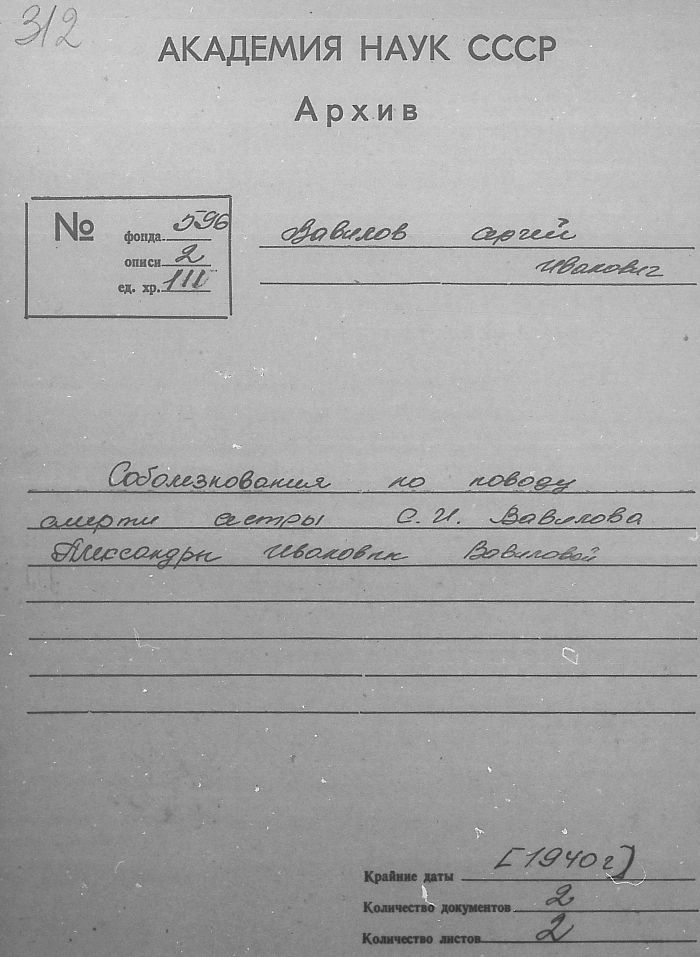 312
АКАДЕМИЯ НАУК СССР
Архив
№
фонда 596
описи 2
ед. хр. 111
Вавилов Сергей
Иванович
Соболезнования по поводу
смерти сестры С. И. Вавилова
Александры Ивановны Вавиловой
Крайние даты [1940г]
Количество документов 2
Количество листов 2